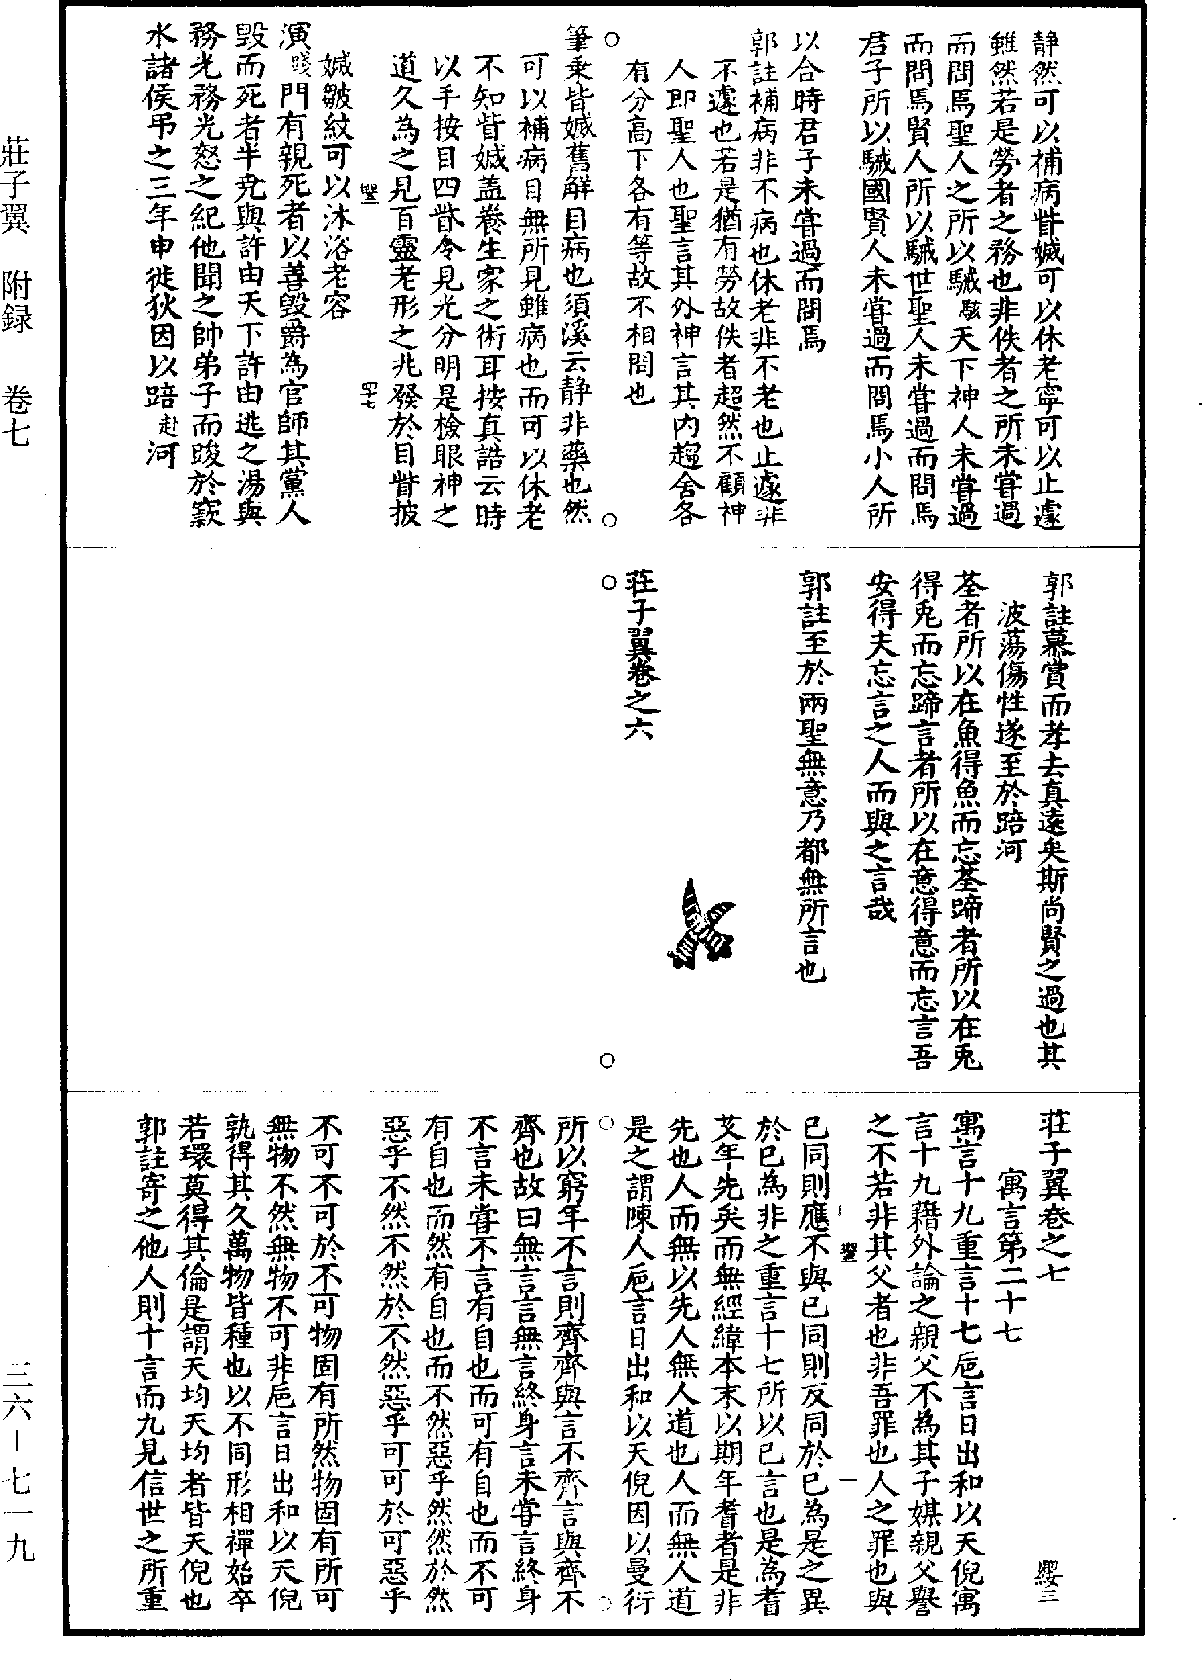 靜然可以補病眥㓕可以休老寧可以止遽
雖然若是勞者之務也非佚者之所未嘗過
而問焉聖人之所以駴駭天下神人未嘗過
而問焉賢人所以駴世聖人未嘗過而問焉
君子所以駴國賢人未嘗過而問焉小人所
以合時君子未嘗過而問焉
郭註補病非不病也休老非不老也止遽非
不遽也若是猶有勞故佚者超然不顧神
人即聖人也聖言其外神言其內趨舍各
有分高下各有等故不相問也
筆乘皆㓕舊解目病也須溪云靜非藥也然
可以補病目無所見雖病也而可以休老
不知眥㓕盖養生家之術耳按真誥云時
以手按目四眥令見光分明是檢眼神之
道久為之見百靈老形之兆發於目眥披
㓕皺紋可以沐浴老容
演踐門有親死者以善毀爵為官師其黨人
毀而死者半堯與許由天下許由逃之湯與
務光務光怒之紀他聞之帥弟子而踆於窾
水諸侯弔之三年申徒狄因以踣赴河
郭註慕賞而孝去真遠矣斯尚賢之過也其
波蕩傷性遂至於踣河
荃者所以在魚得魚而忘荃蹄者所以在兎
得兎而忘蹄言者所以在意得意而忘言吾
安得夫忘言之人而與之言哉
郭註至於兩聖無意乃都無所言也
莊子翼卷之六
莊子翼卷之七
寓言第二十七
寓言十九重言十七巵言日出和以天倪寓
言十九藉外論之親父不為其子媒親父譽
之不若非其父者也非吾罪也人之罪也與
已同則應不與已同則反同於已為是之異
於已為非之重言十七所以已言也是為耆
艾年先矣而無經緯本末以期年耆者是非
先也人而無以先人無人道也人而無人道
是之謂陳人巵言日出和以天倪因以曼衍
所以窮年不言則齊齊與言不齊言與齊不
齊也故曰無言言無言終身言未嘗言終身
不言未嘗不言有自也而可有自也而不可
有自也而然有自也而不然惡乎然然於然
惡乎不然不然於不然惡乎可可於可惡乎
不可不可於不可物固有所然物固有所可
無物不然無物不可非巵言日出和以天倪
孰得其久萬物皆種也以不同形相禪始卒
若環莫得其倫是謂天均天均者皆天倪也
郭註寄之他人則十言而九見信世之所重
莊子翼 附録 卷七
三六－七一九